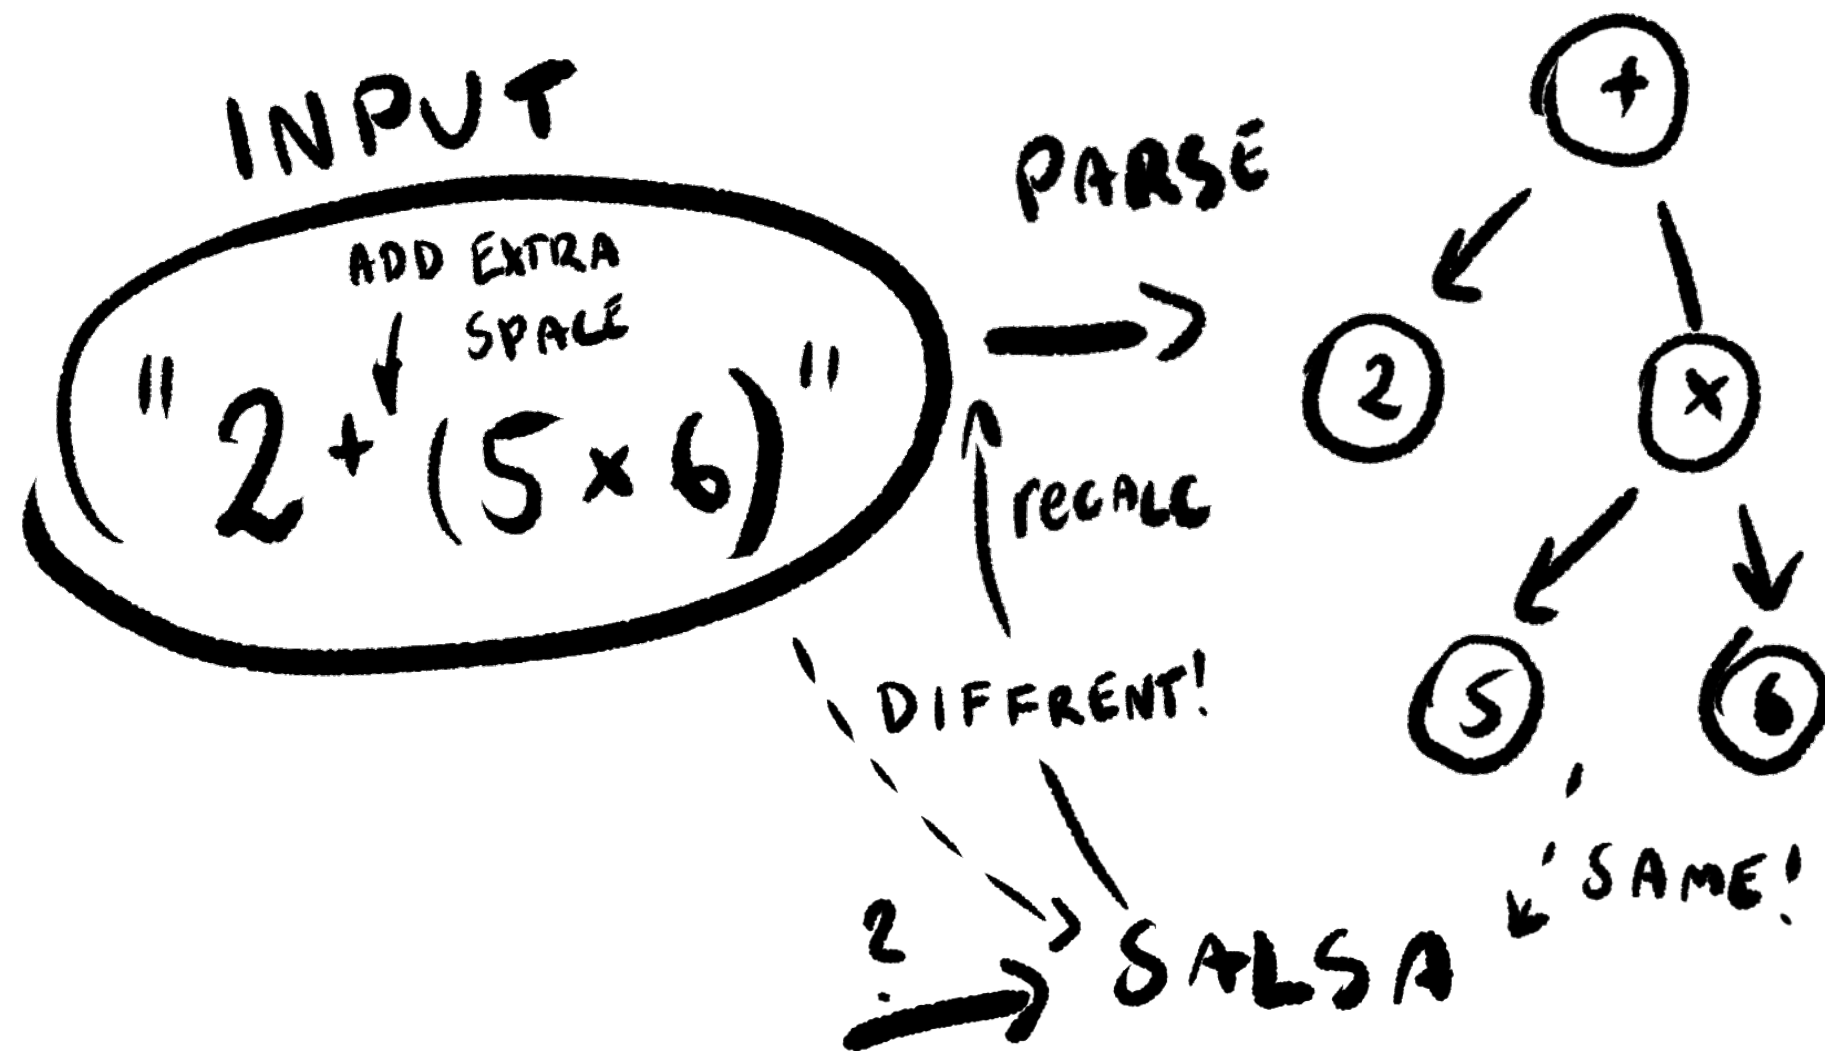 INPUT
ADD EXTRA
SPACE
"2+(5×6)"
PARSE
+
2
×
5
6
recalc
DIFFRENT!
SAME!
?
SALSA